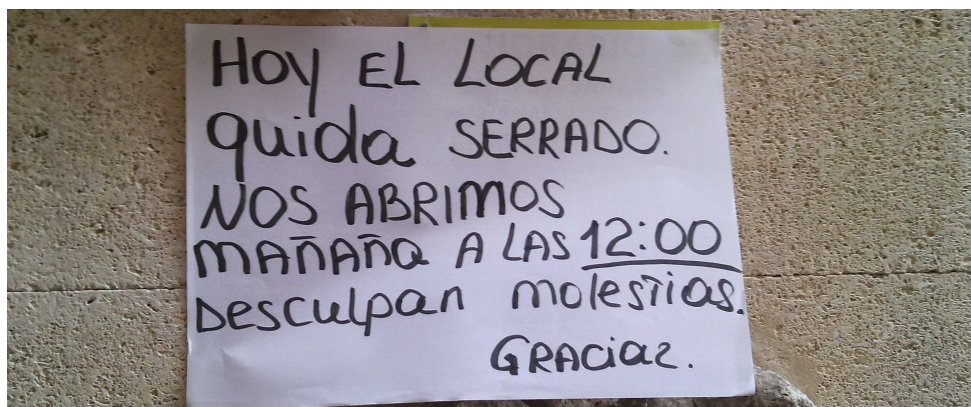 Hoy EL LOCAL
quida SERRADO.
NOS ABRIMOS
MAÑAÑA A LAS 12:00
Desculpan molestias.
GRACiaz.